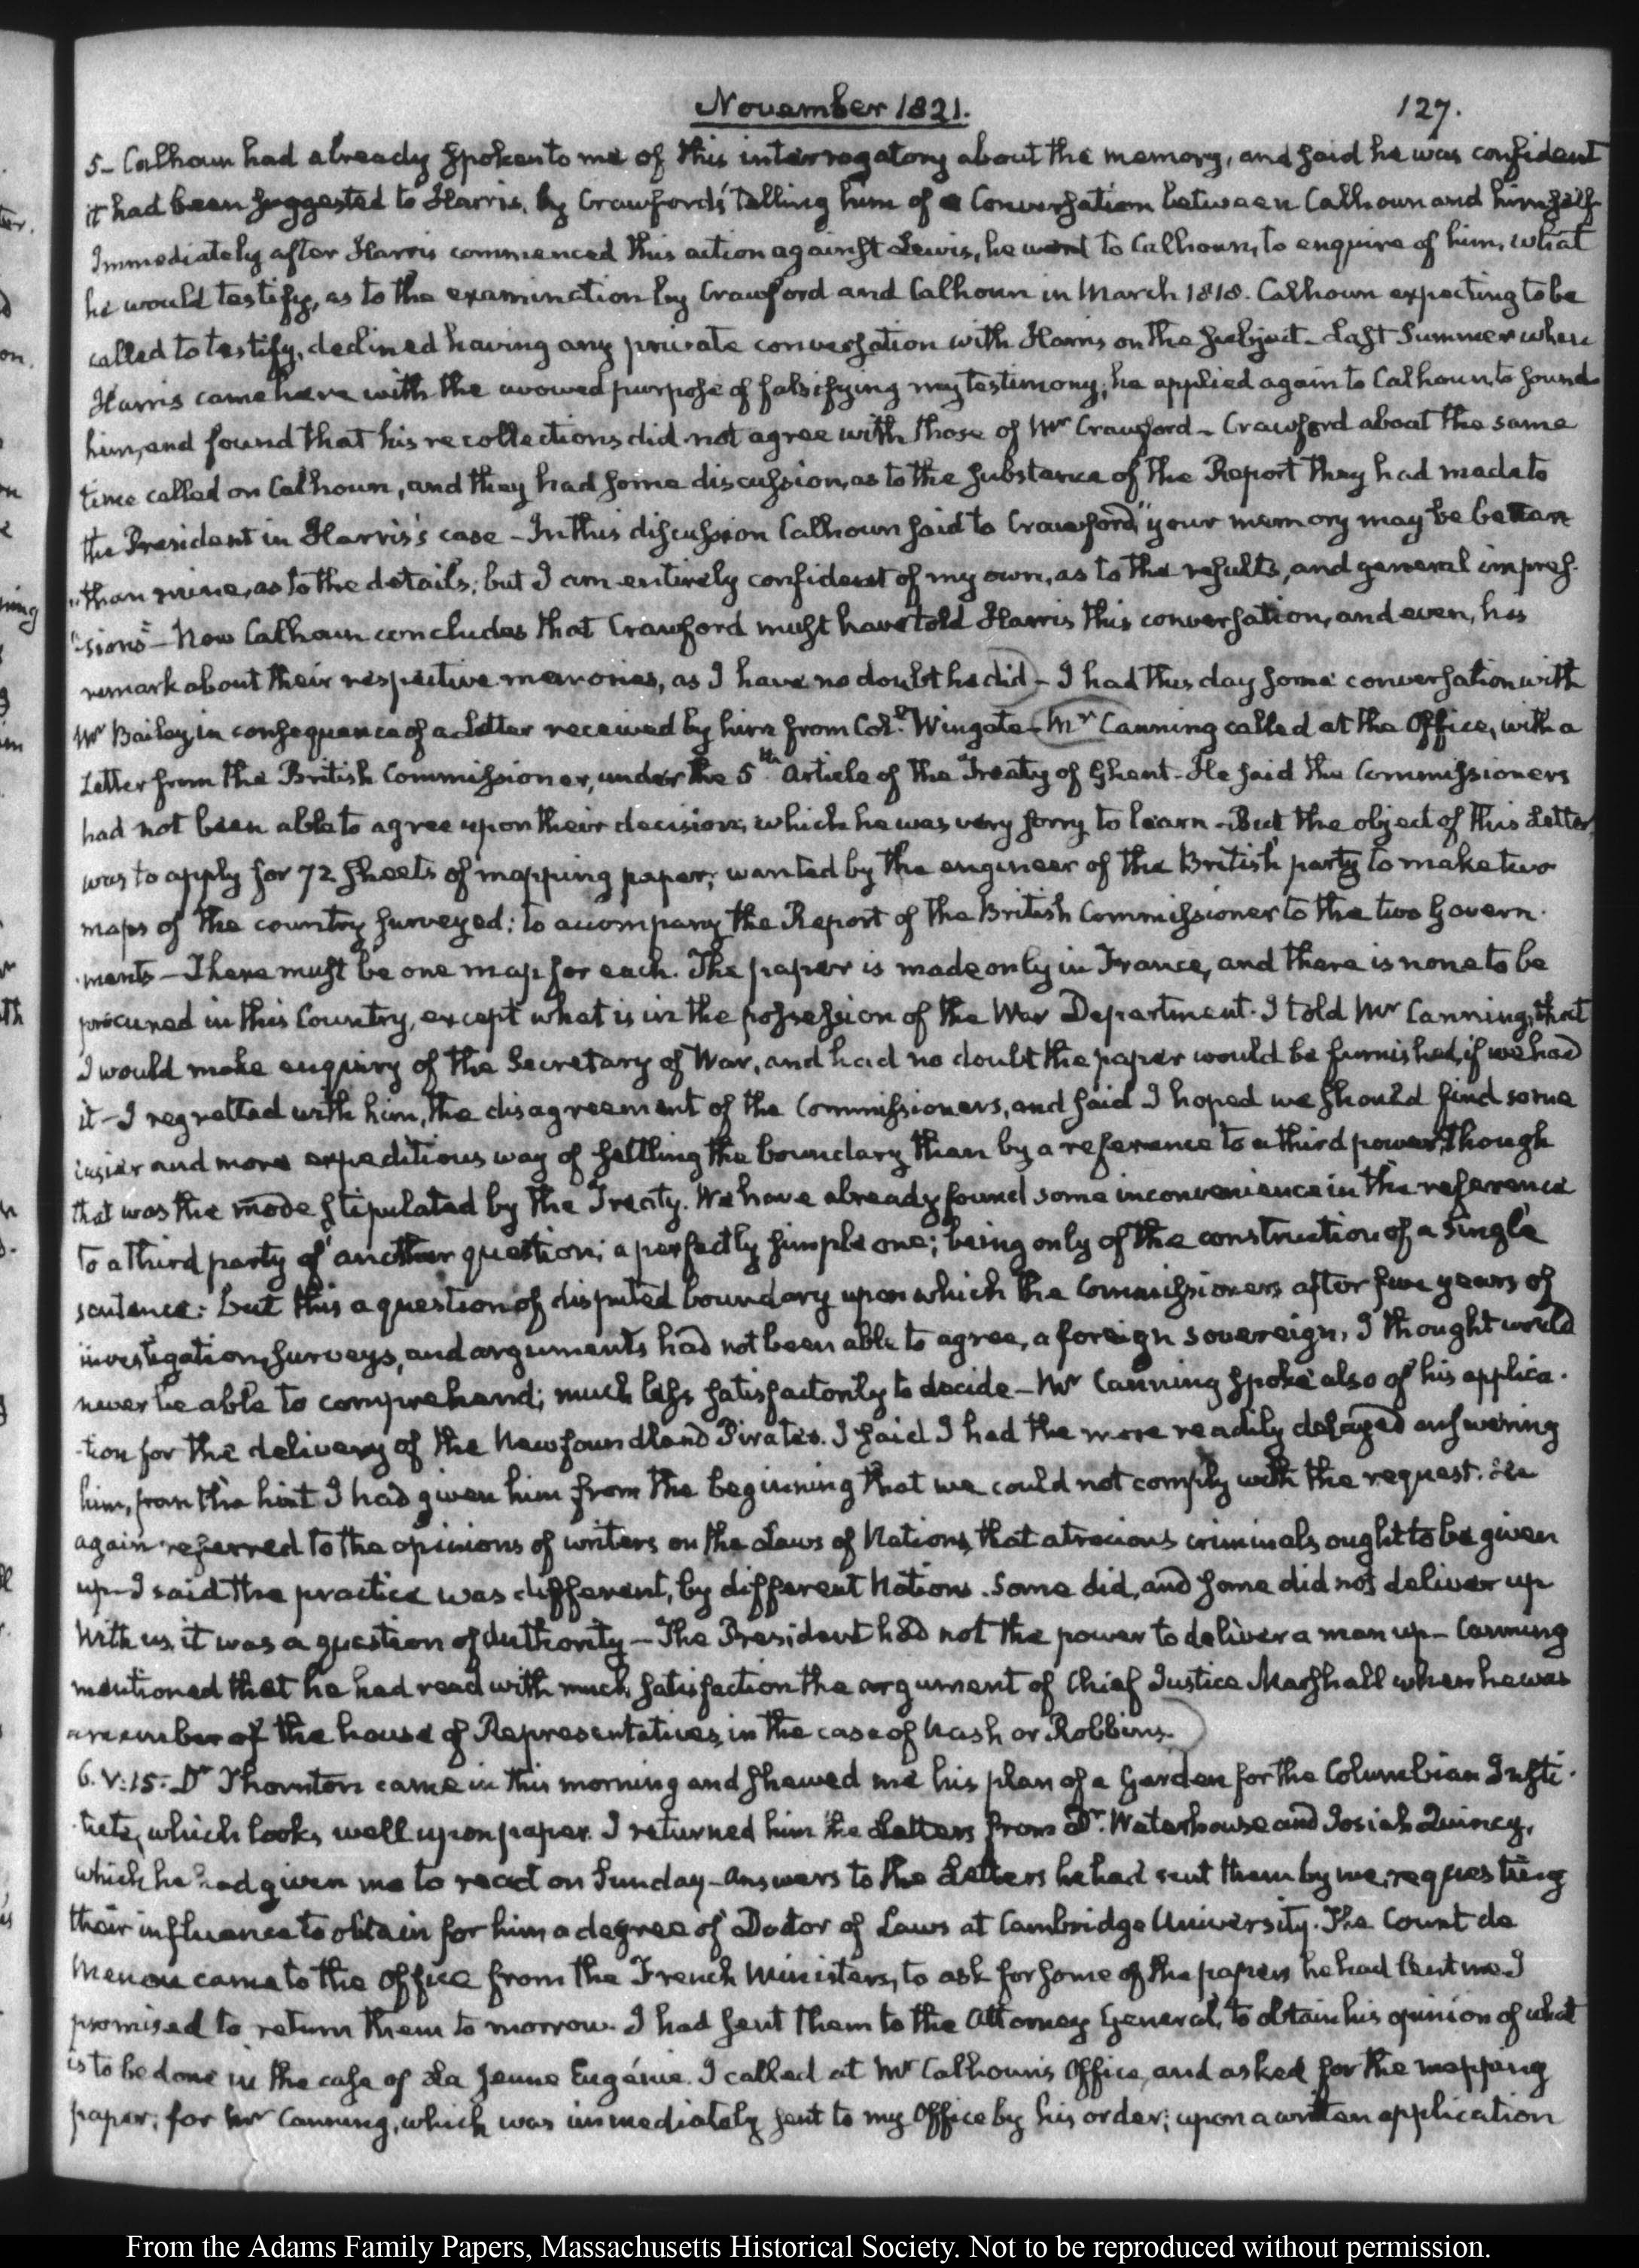 November 1821.
127.
5- Calhoun had already spoken to me of this interrogatory about the memory, and said he was confident
it had been suggested to Harris, by Crawford's telling him of a Conversation between Calhoun and himself
Immediately after Harris commenced this action against Lewis, he went to Calhoun, to enquire of him, what
he would testify, as to the examination by Crawford and Calhoun in March 1818. Calhoun expecting to be
called to testify, declined having any private conversation with Harris on the subject. Last Summer when
Harris came here with the avowed purpose of falsifying my testimony, he applied again to Calhoun, to sound
him, and found that his recollections did not agree with those of Mr Crawford - Crawford about the same
time called on Calhoun, and they had some discussion, as to the substance of the Report they had made to
the President in Harris's case - In this discussion Calhoun said to Crawford, "your memory may be better
"than mine, as to the details; but I am entirely confident of my own, as to the results, and general impres-
"-sions" - Now Calhoun concludes that Crawford must have told Harris this conversation, and even, his
remark about their respective memories, as I have no doubt he did - I had this day some conversation with
Mr Bailey, in consequence of a Letter received by him from Coll. Wingate - Mr Canning called at the Office, with a
Letter from the British Commissioner, under the 5th Article of the Treaty of Ghent - He said the Commissioners
had not been able to agree upon their decision, which he was very sorry to learn - But the object of this Letter
was to apply for 72 sheets of mapping paper, wanted by the engineer of the British party to make two
maps of the country surveyed: to accompany the Report of the British Commissioner to the two Govern-
-ments - There must be one map for each. The paper is made only in France, and there is none to be
procured in this Country, except what is in the possession of the War Department. I told Mr Canning, that
I would make enquiry of the Secretary of War, and had no doubt the paper would be furnished, if we had
it - I regretted with him, the disagreement of the Commissioners, and said I hoped we should find some
easier and more expeditious way of settling the boundary than by a reference to a third power, though
that was the mode stipulated by the Treaty. We have already found some inconvenience in the reference
to a third party of another question; a perfectly simple one; being only of the construction of a single
sentence: but this a question of disputed boundary upon which the Commissioners after five years of
investigation, surveys, and arguments had not been able to agree, a foreign sovereign, I thought would
never be able to comprehend; much less satisfactorily to decide - Mr Canning spoke also of his applica-
-tion for the delivery of the Newfoundland Pirates. I said I had the more readily delayed answering
him, from the hint I had given him from the beginning that we could not comply with the request. He
again referred to the opinions of writers on the Laws of Nations, that atrocious criminals ought to be given
up - I said the practice was different, by different Nations. Some did, and some did not deliver up
With us, it was a question of Authority - The President had not the power to deliver a man up - Canning
mentioned that he had read with much satisfaction the argument of Chief Justice Marshall when he was
a member of the house of Representatives, in the case of Nash or Robbins.
6. V:15. Dr Thornton came in this morning and shewed me his plan of a Garden for the Columbian Insti-
-tute, which looks well upon paper. I returned him the Letters from Dr. Waterhouse and Josiah Quincy,
which he had given me to read on Sunday - Answers to the Letters he had sent them by me, requesting
their influence to obtain for him a degree of Doctor of Laws at Cambridge University. The Count de
Menou came to the Office from the French Minister, to ask for some of the papers he had lent me. I
promised to return them to morrow. I had sent them to the Attorney General, to obtain his opinion of what
is to be done in the case of La Jeune Eugénie. I called at Mr Calhoun's Office, and asked for the mapping
paper, for Mr Canning, which was immediately sent to my Office by his order; upon a written application
From the Adams Family Papers, Massachusetts Historical Society. Not to be reproduced without permission.